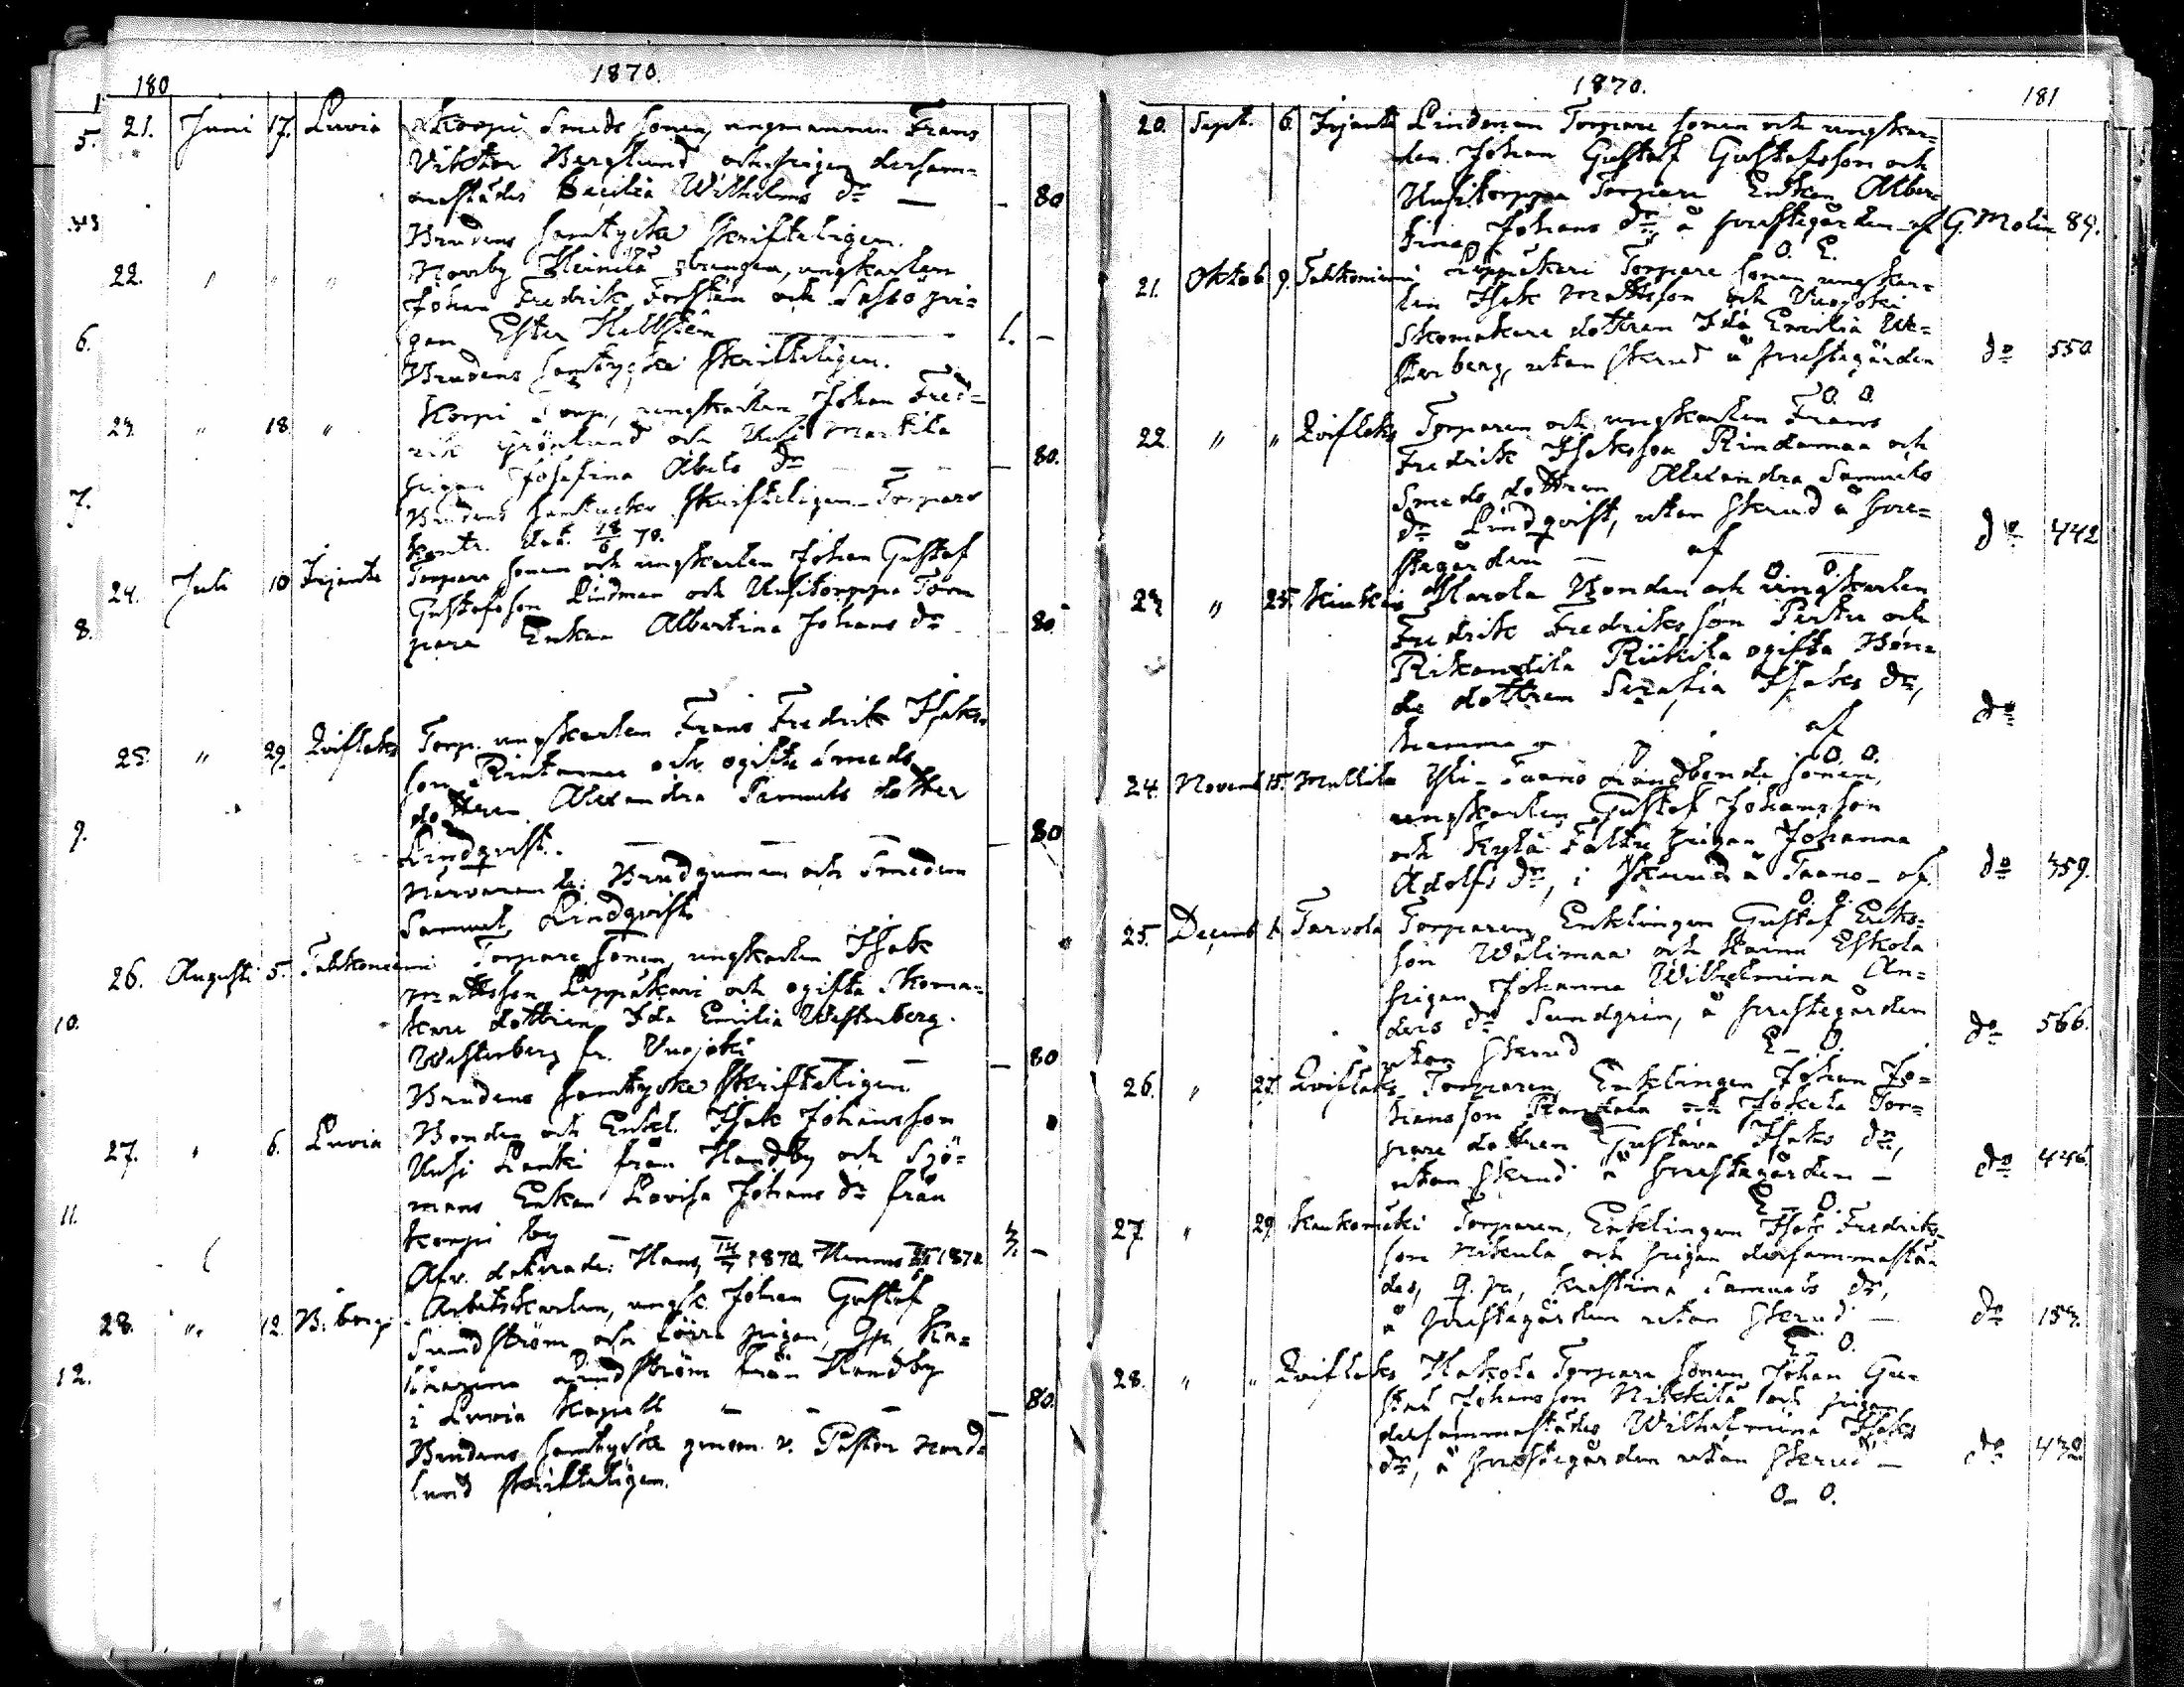 180
1870.
21. Juni 17. Luvia Korpi Smeds sonen, ungmannen Frans
Viktor Berglund och pigan dersam-
mastädes Cecilia Wilhelms dr — — 80
Brudens samtycke skrifteligen.
22. " " " Norrby Heinilä drengen, ungkarlen
Johan Fredrik Forstén och Lasto pi-
gan Ester Hellstén 1. —
Brudens samtycke skrifteligen.
23. " 18 " Korpi Torp., ungkarlen Johan Fred-
rik Grönlund och Uusi Markila
pigan Josefina Abels dr — — — 80.
Brudens samtycke skrifteligen - Torpare
kontr. dat. 18/6 70.
24. Juli 10 Irjante Torpare sonen och ungkarlen Johan Gustaf
Gustafsson Lindman och Uusitorppa Tor-
pare Enkan Albertina Johans dr — 80.
25. " 29. Lavila Torp. ungkarlen Frans Fredrik Isaks-
son Rintamaa och ogifta Smeds
dottren Alexandra Samuels dotter
Lindqvist. — — — — 80
Närvarande: Brudgummen och Smeden
Samuel Lindqvist
26. Augusti 5. Tahkoniemi Torpare sonen, ungkarlen Isak
Mattsson Leppäkari och ogifta Skoma-
kare dottren Ida Emilia Westerberg.
Westerberg fr. Vuojoki — — 80
Brudens samtycke skrifteligen
27. " 6. Luvia Bonden och Enkl. Isak Johansson
Uusi Lanki från Hanby och Sjö-
mans Enkan Lovisa Johans dr från
Korpi by — 3. —
Afv. daterade: Hans 1870 Hennes 1870
28. " 12. B:borg Arbetskarlen, ungk. Johan Gustaf
Sundström och Löira pigan, Jfr, Ka-
tharina Lindström från Hanby
i Luvia Kapell — — — — 80.
Brudens samtycke genom v. Pastor Nord-
lund skrifteligen.
5.
6.
7.
8.
9.
10.
11.
12.
1870.
181
20. Sept. 6. Irjante Lindman Torpare sonen och ungkar-
len Johan Gustaf Gustafsson och
Uusitorppa Torpare Enkan Alber-
tina Johans dr å prestegården - af G. Molin 89.
O. E.
21. Oktob 9. Tahkoniemi Leppäkari Torpare sonen ungkar-
len Isak Mattsson och Vuojoki
Skomakare dottren Ida Emilia We-
sterberg, utan skrud å prestegården do 550
O. O.
22. " " Torparen och ungkarlen Frans
Fredrik Isaksson Rindamaa och
Smeds dottren Alexandra Samuels
dr Lindqvist, utan skrud å pre-
stegården — af — do 442
O. O.
23. " 25. Harola Bonden och ungkarlen
Fredrik Fredriksson Perttu och
Rikandila Riikila ogifta Bon-
de dottren Serafia Isaks dr,
hemma af do
O. O.
24. Novemb 15. Mullila Yli-Taano Landbonde sonen,
ungkarlen Gustaf Johansson
och Kylä Faltu pigan Johanna
Adolfs dr, i skrud å Taano - af do 459.
O. O.
25. Decemb 1. Tarvola Torparen, Enklingen Gustaf Eriks-
son Wälimaa och Kaunis Eskola
pigan Johanna Wilhelmina An-
ders dr Sundgrén, å prestegården
utan skrud do 566.
E - O.
26. " 27. Torparen, Enklingen Johan Jo-
hansson Randala och Jokela Tor-
pare dottren Gustava Isaks dr,
utan skrud å prestegården — do 446.
E - O.
27. " 29. Kaukomäki Torparen, Enklingen Isak Fredriks-
son Nikula och pigan dersammastä-
des, Q. p., Kristina Samuels dr,
å prestegården utan skrud — do 153.
E - O.
28. " " Hakola Torpare sonen Johan Gu-
staf Johansson Nikkilä och pigan
dersammastädes Wilhelmina Isaks
dr, å prestegården utan skrud — do 430
O - O.